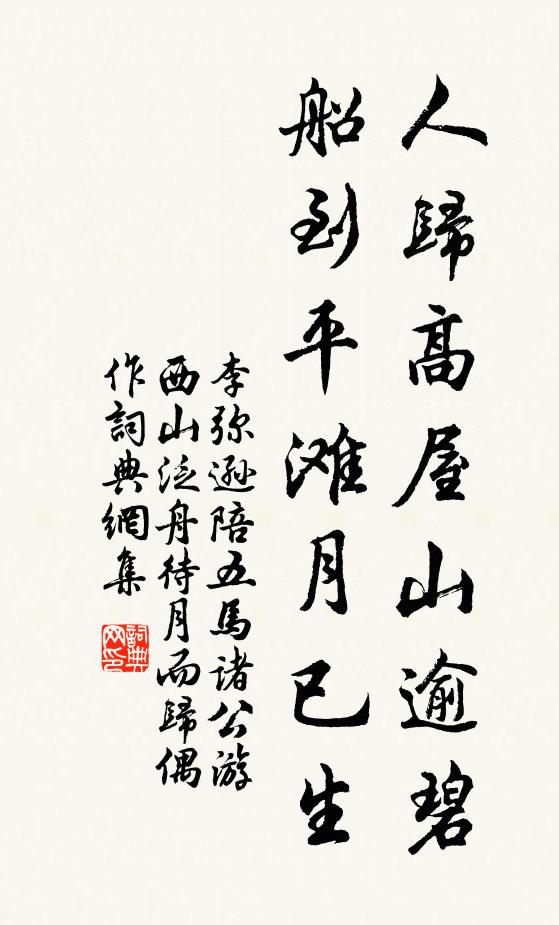 人歸高屋山逾碧
船到平滩月已生
李弥遜陪五馬诸公游
西山泛舟待月而歸偶
作詞典網集
詞典
网印